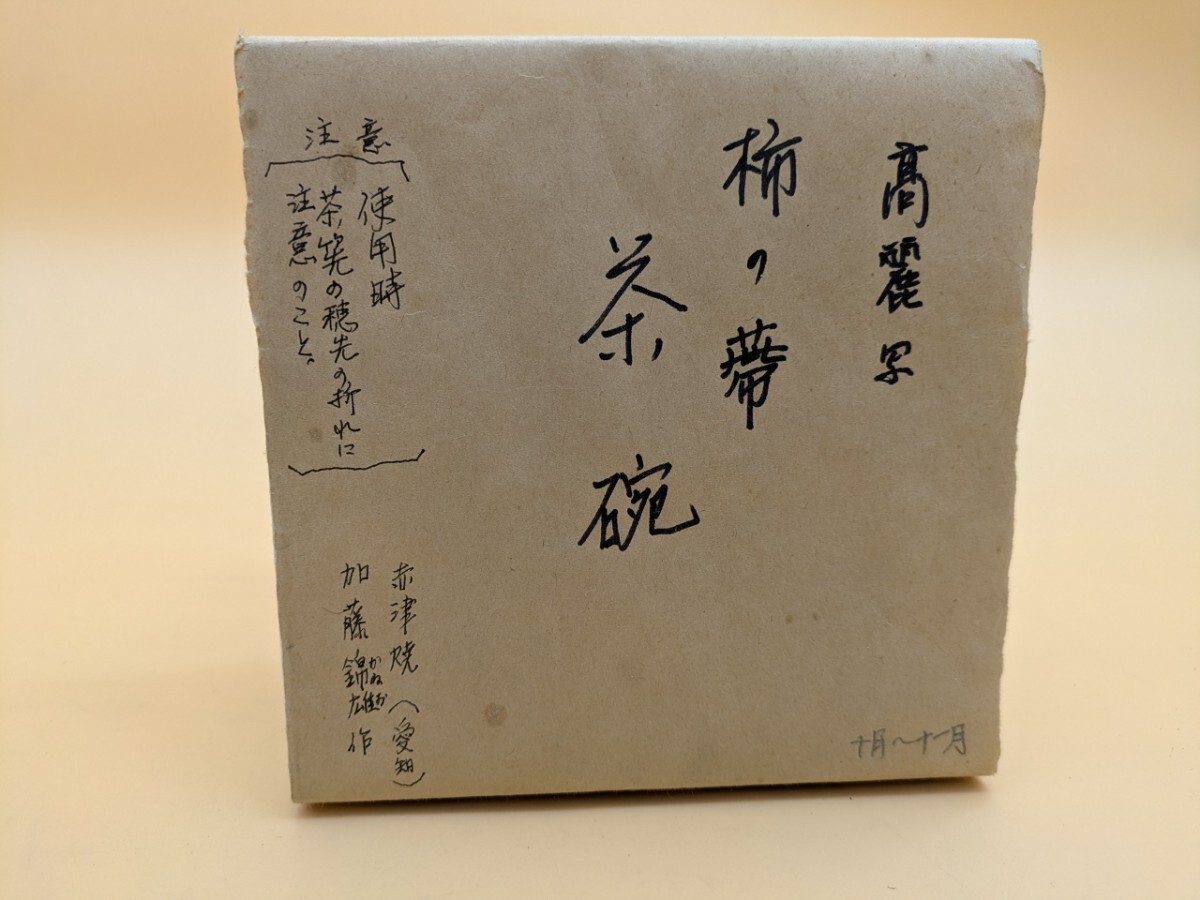 高麗写
柿の蔕
茶碗
注意
使用時
茶筅の穂先の折れに
注意のこと。
赤津焼(愛知)
加藤錦雄作
かねお
十月〜十一月